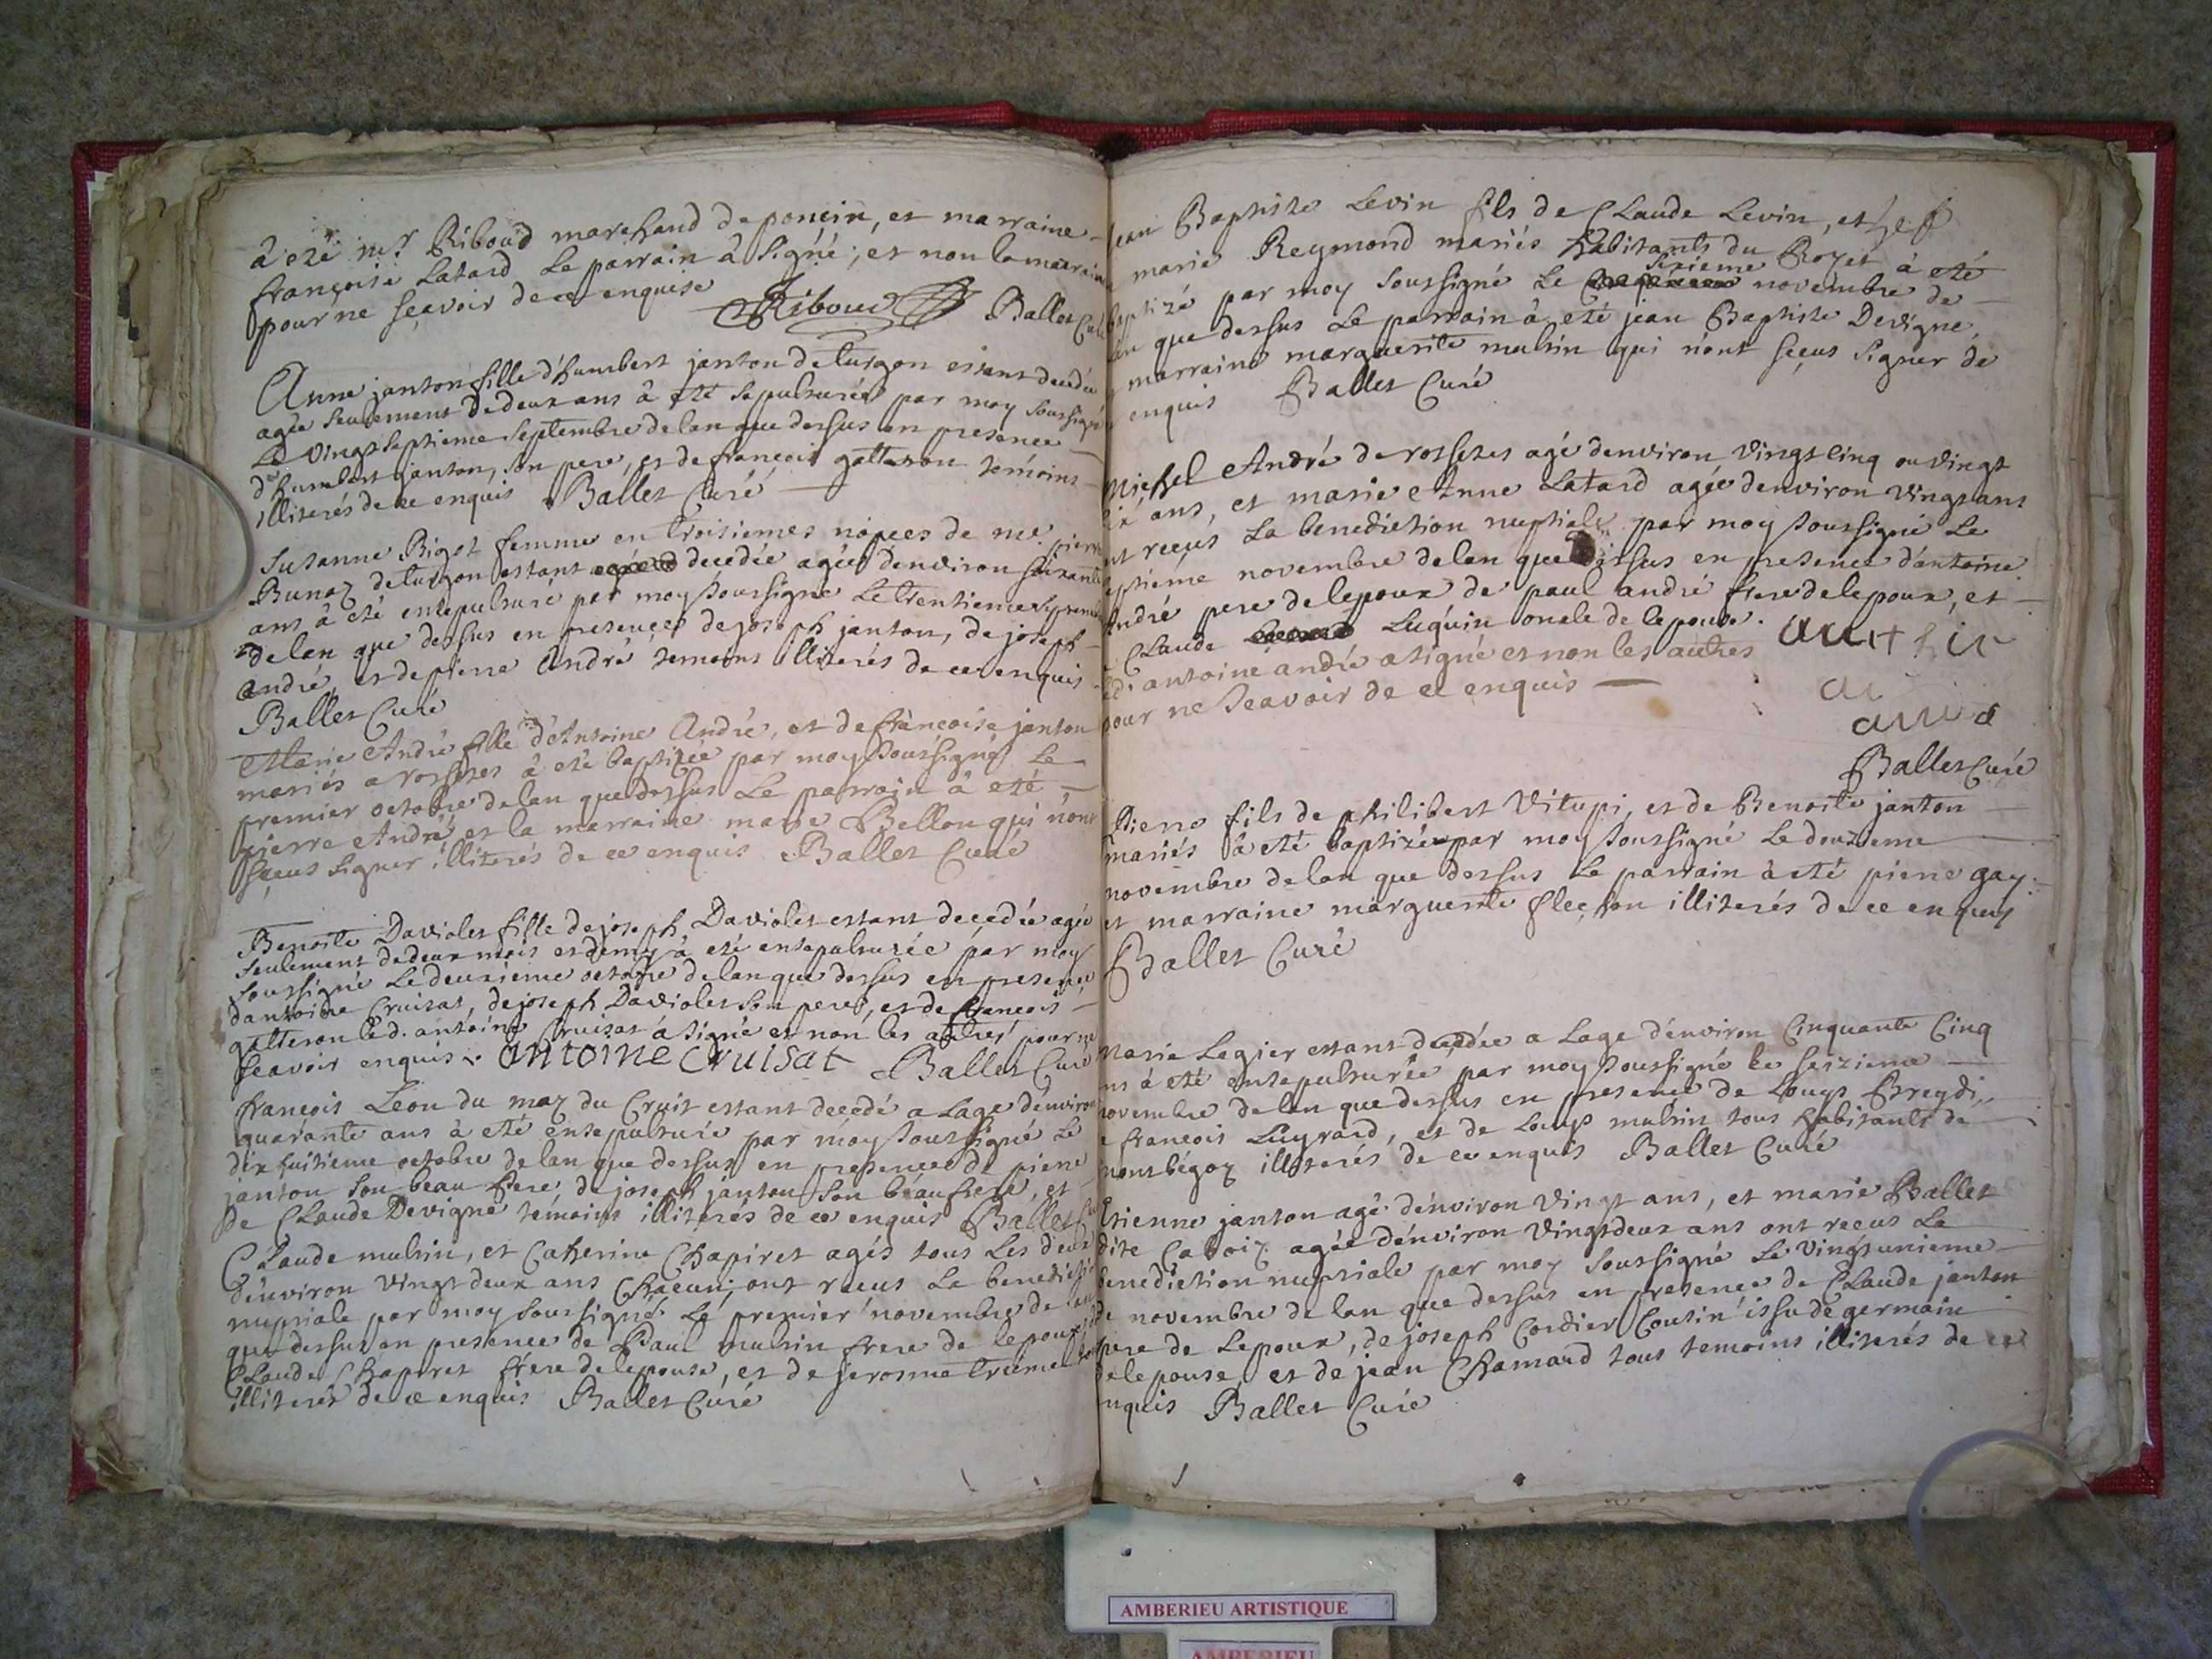 à eté mr Riboud marchand de poncin, et marraine
françoise Latard Le parrain à signé, et non la marraine
pour ne sçavoir de ce enquise Riboud Ballet Curé
Anne janton fille d'humbert janton de turgon estant decedée
agée seulement de deux ans à eté sepulturée par moy soussigné
Le vingt septieme septembre de lan que dessus en presence
d'humbert janton, son pere, et de françois galteron temoins
illiterés de ce enquis Ballet Curé
Susanne Bigot femme en troisiemes nopces de me. pierre
Bunoz de turgon estant decedée agée denviron soixante
ans à eté ensepulturé par moy soussigné Le trentieme septembre
de lan que dessus en presences de joseph janton, de joseph
andré, et de pierre André temoins illiterés de ce enquis
Ballet Curé
Marie André fille d'Antoine André, et de françoise janton
mariés a rossetes à eté baptizée par moy soussigné Le
premier octobre de lan que dessus Le parrain à eté
pierre André et la marraine marie Bellon qui n'ont
sçeus signer illiterés de ce enquis Ballet Curé
Benoite Daviolet fille de joseph Daviolet estant decedée agée
seulement de deux mois et demy à eté ensepulturée par moy
soussigné Le deuxieme octobre de lan que dessus en presence
dantoine Cruisat, de joseph Daviolet son pere, et de francois
galteron led. antoine Cruisat à signé et non les autres pour ne
sçavoir enquis. antoine Cruisat Ballet Curé
françois Leon du maz du Cruit estant decedé a Lage d'environ
quarante ans à eté ensepulturé par moy soussigné Le
dix huitieme octobre de lan que dessus en presences de pierre
janton son beau pere, de joseph janton son beaufrere, et
de Claude Devigne témoins illiterés de ce enquis Ballet Curé
Claude mulsin, et Catherine Chapiret agés tous Les deux
d'environ vingt deux ans Chacun, ont reçeus La benediction
nuptiale par moy soussigné Le premier novembre de lan
que dessus en presence de Paul mulsin frere de lepoux, de
Claude Chapiret frere de lepouse, et de jerosme
illiterés de ce enquis Ballet Curé
jean Baptiste Levin fils de Claude Levin, et
marie Reymond mariés habitants du Royet à eté
baptizé par moy soussigné Le sixieme novembre de
lan que dessus Le parrain à eté jean Baptiste Devigne,
marraine marguerite mulsin qui n'ont sçeus signer de
enquis Ballet Curé
Michel André de rossetes agé denviron vingt cinq ou vingt
six ans, et marie Anne Latard agée denviron vingt ans
ont reçeus La benediction nuptiale par moy soussigné Le
septieme novembre de lan que dessus en presence d'antoine
André pere de lepoux de paul andré frere de lepoux, et
Claude Luquin oncle de lepouse.
led. antoine andré a signé et non les autres
pour ne sçavoir de ce enquis
Ballet Curé
Pierre fils de philibert Vitupi, et de Benoite janton
mariés à eté baptizé par moy soussigné Le douzieme
novembre de lan que dessus Le parrain à eté pierre gay
et marraine marguerite flechon illiterés de ce enquis
Ballet Curé
Marie Legier estant decedée a Lage d'environ Cinquante Cinq
ans à eté ensepulturée par moy soussigné Le seizieme
novembre de lan que dessus en presence de Louys Breydi,
de francois Luyrard, et de Louys mulsin tous habitants de
montbégoz illiterés de ce enquis Ballet Curé
Etienne janton agé d'environ vingt ans, et marie Ballet
dite Cadoiz agée d'environ vingt deux ans ont reçeus La
benediction nuptiale par moy soussigné Le vingt unieme
de novembre de lan que dessus en presence de Claude janton
pere de Lepoux, de joseph Cordier Cousin issu de germain
de lepouse, et de jean Chamard tous temoins illiterés de ce
enquis Ballet Curé
AMBERIEU ARTISTIQUE
AMBERIEU